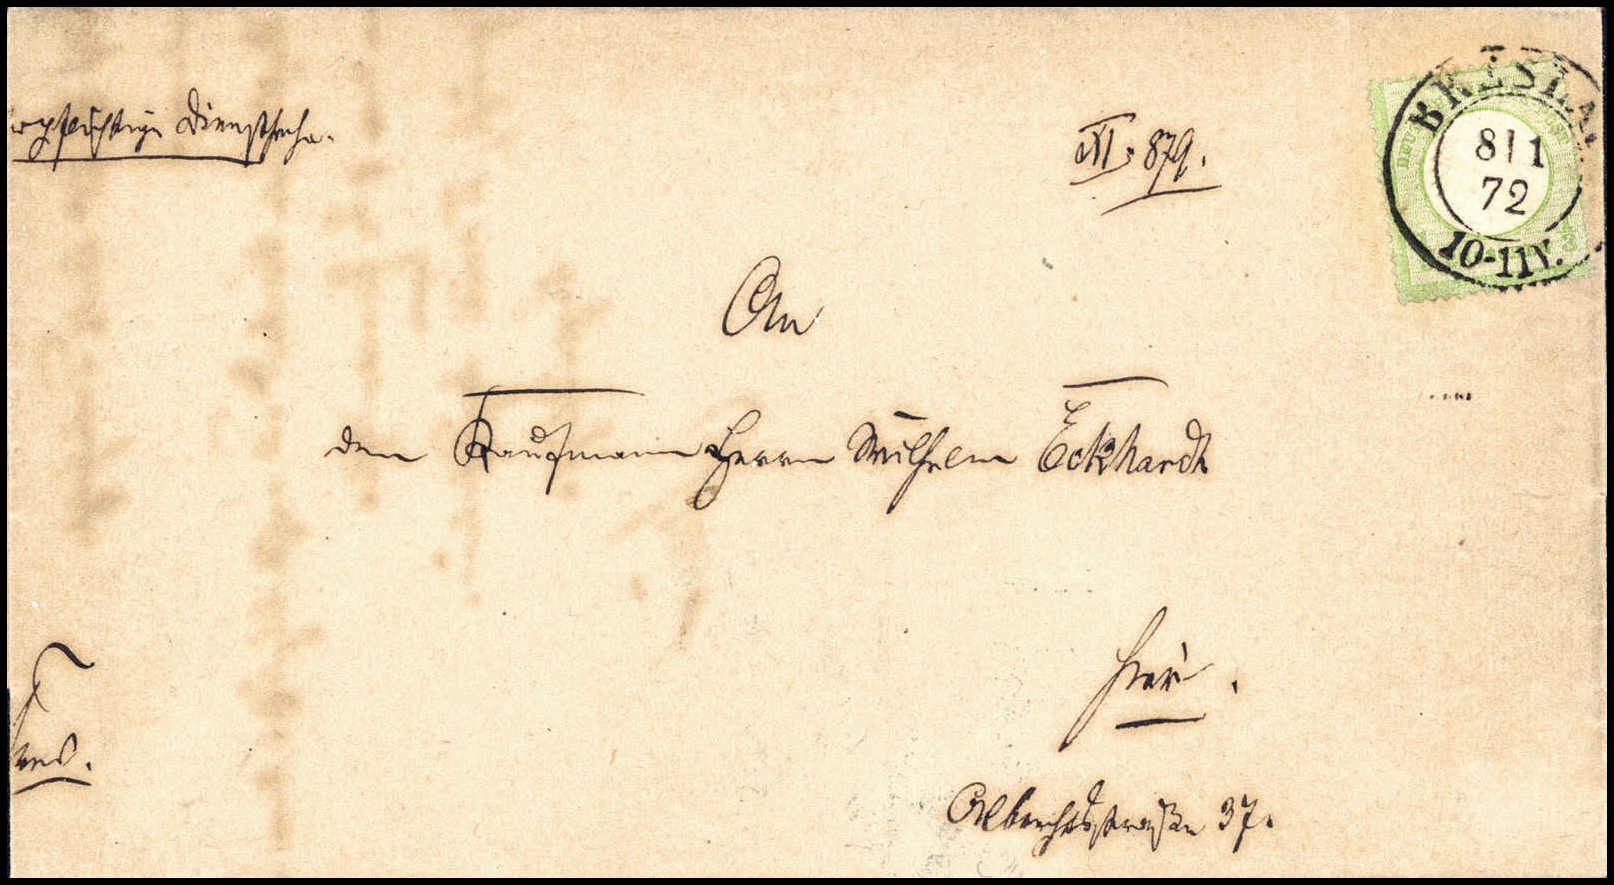 Dienstsache.
XI. 879.
BRESLA
8 1
72
10-11V.
An
den Kaufmann Herrn Wilhelm Eckhardt
hier.
Albrechtsstraße 37.